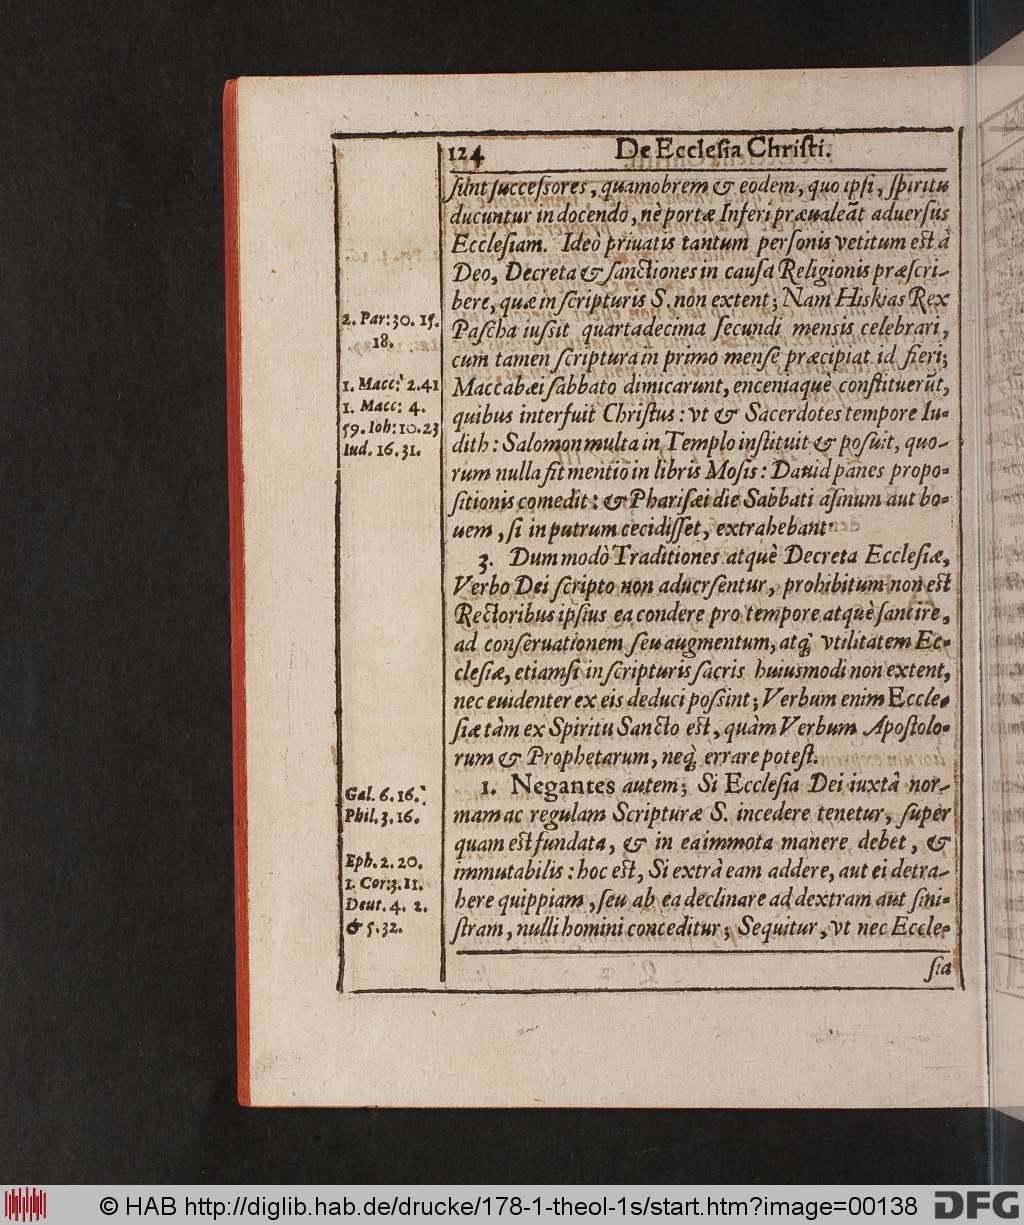 124 De Ecclesia Christi.
sunt successores, quamobrem & eodem, quo ipsi, spiritu
ducuntur in docendo, nè portæ Inferi præualeāt aduersus
Ecclesiam. Ideò priuatis tantum personis vetitum est à
Deo, Decreta & sanctiones in causa Religionis præscri-
bere, quæ in scripturis S. non extent; Nam Hiskias Rex
Pascha iussit quartadecima secundi mensis celebrari,
cum tamen scriptura in primo mense præcipiat id fieri;
Maccabæi sabbato dimicarunt, enceniaquè constituerūt,
quibus interfuit Christus: vt & Sacerdotes tempore Iu-
dith: Salomon multa in Templo instituit & posuit, quo-
rum nulla fit mentio in libris Mosis: Dauid panes propo-
sitionis comedit: & Pharisæi die Sabbati asinum aut bo-
uem, si in putrum cecidisset, extrahebant.
3. Dummodò Traditiones atquè Decreta Ecclesiæ,
Verbo Dei scripto non aduersentur, prohibitum non est
Rectoribus ipsius ea condere pro tempore atquè sancire,
ad conseruationem seu augmentum, atq́; vtilitatem Ec-
clesiæ, etiamsi in scripturis sacris huiusmodi non extent,
nec euidenter ex eis deduci possint; Verbum enim Eccle-
siæ tàm ex Spiritu Sancto est, quàm Verbum Apostolo-
rum & Prophetarum, neq́; errare potest.
1. Negantes autem; Si Ecclesia Dei iuxtà nor-
mam ac regulam Scripturæ S. incedere tenetur, super
quam est fundata, & in ea immota manere debet, &
immutabilis: hoc est, Si extrà eam addere, aut ei detra-
here quippiam, seu ab ea declinare ad dextram aut sini-
stram, nulli homini conceditur; Sequitur, vt nec Eccle-
sia
2. Par: 30. 15.
18.
1. Macc: 2. 41
1. Macc: 4.
59. Ioh: 10. 23
Iud. 16. 31.
Gal. 6. 16.
Phil. 3. 16.
Eph. 2. 20.
1. Cor: 3. 11.
Deut. 4. 2.
& 5. 32.
© HAB http://diglib.hab.de/drucke/178-1-theol-1s/start.htm?image=00138 DFG